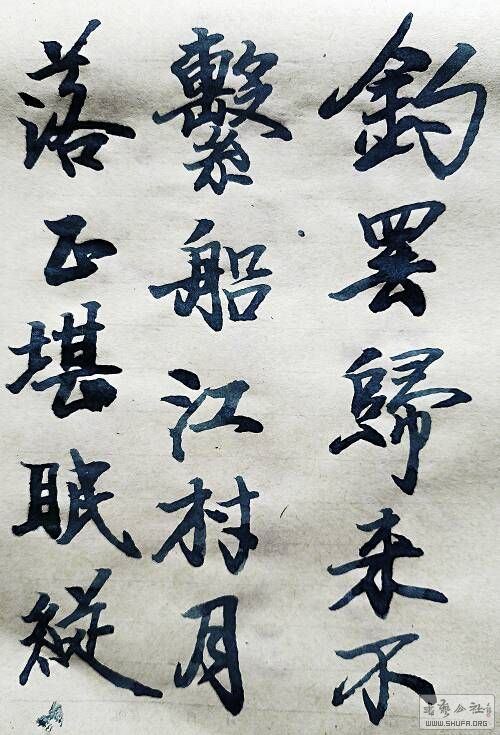 釣罷歸来不
繫船江村月
落正堪眠縱
书艺公社
WWW.SHUFA.ORG